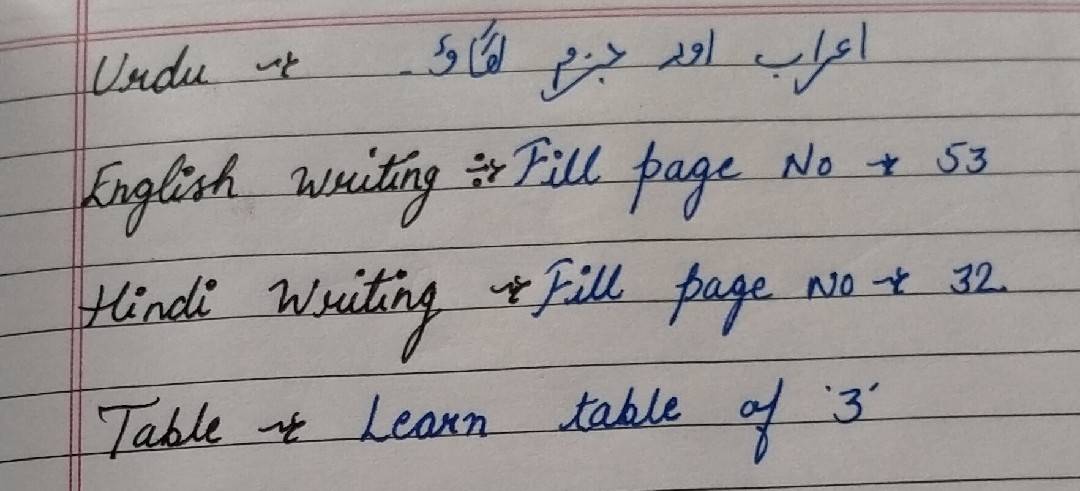 Urdu :- اعراب اور جزم لگاؤ۔
English Writing :- Fill page No :- 53
Hindi Writing :- Fill page No :- 32.
Table :- Learn table of '3'